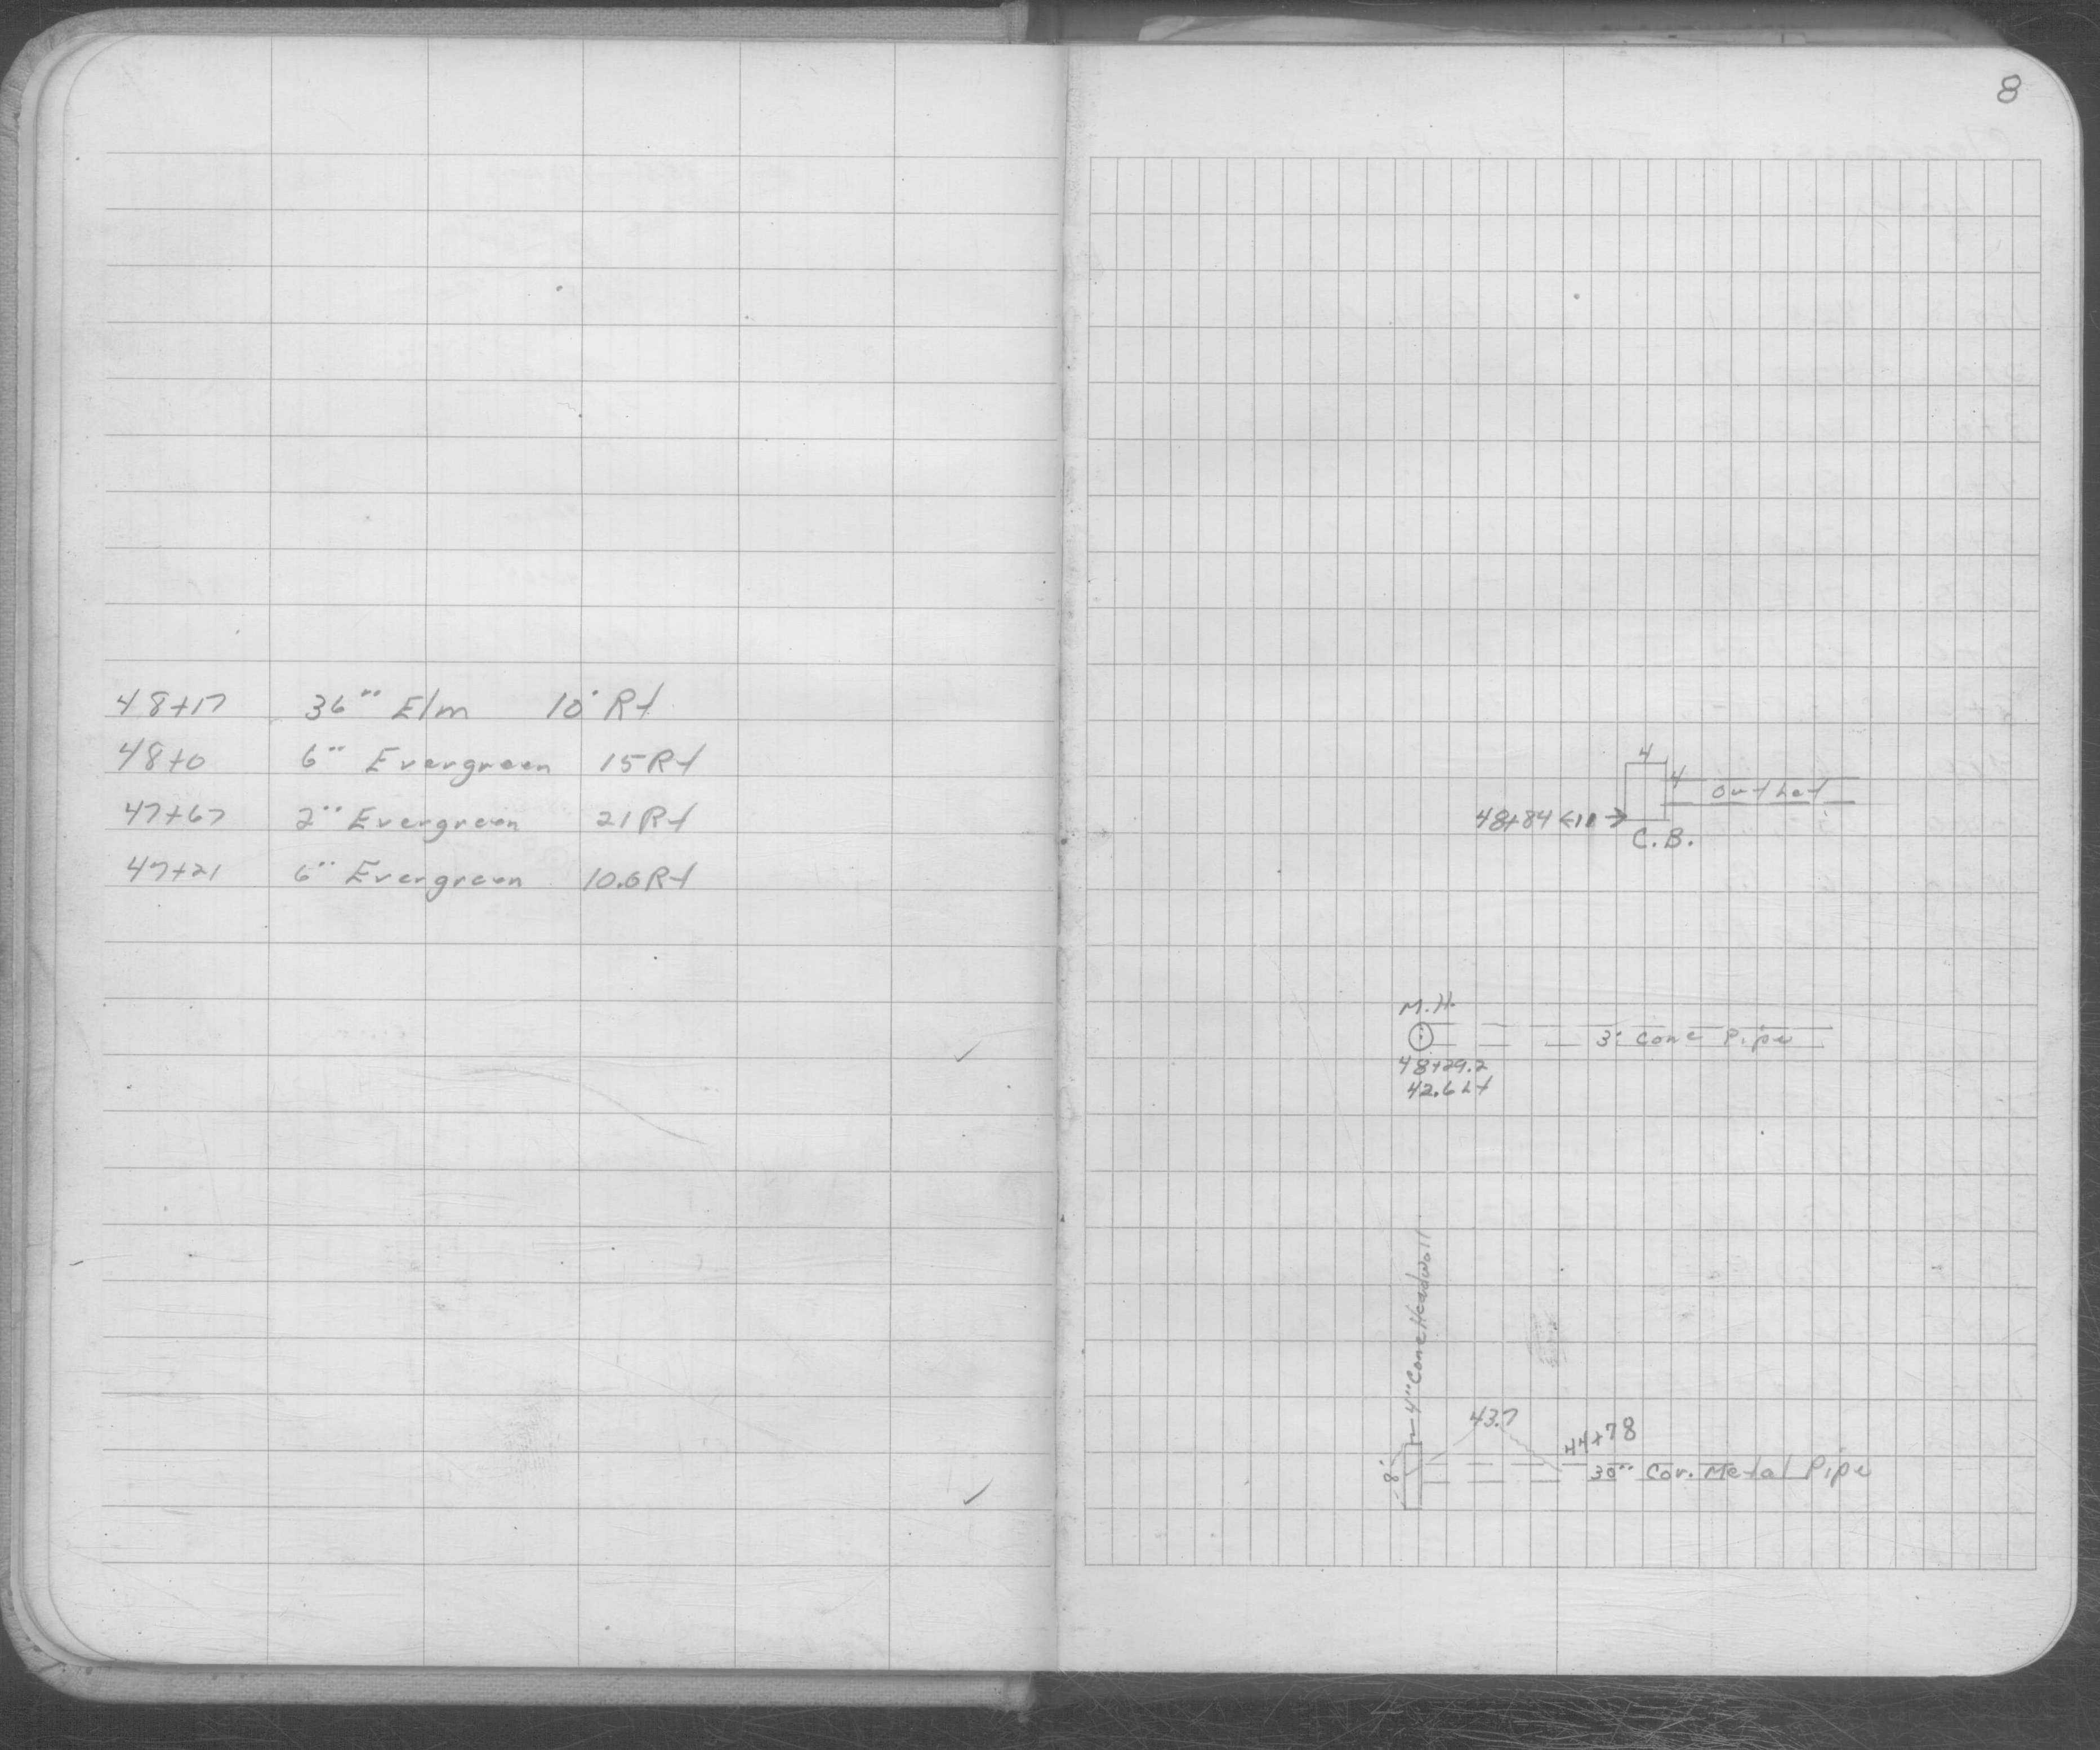 8
48+17 36" Elm 10' Rt
48+0 6" Evergreen 15 Rt
47+67 2" Evergreen 21 Rt
47+21 6" Evergreen 10.6 Rt
4
4
Outlet
48+84 <11>
C.B.
M.H.
3' Conc Pipe
48+29.2
42.6 Lt
4" Conc Headwall
43.7
44+78
8'
30" Cor. Metal Pipe